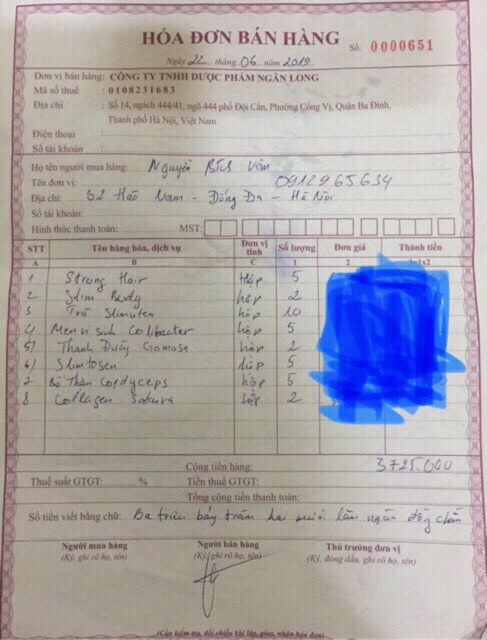 HÓA ĐƠN BÁN HÀNG
Số: 0000651
Ngày 22 tháng 06 năm 2019
Đơn vị bán hàng: CÔNG TY TNHH DƯỢC PHẨM NGÂN LONG
Mã số thuế : 0108231683
Địa chỉ : Số 14, ngách 444/41, ngõ 444 phố Đội Cấn, Phường Cống Vị, Quận Ba Đình,
Thành phố Hà Nội, Việt Nam
Điện thoại :
Số tài khoản :
Họ tên người mua hàng: Nguyễn Bích Vân
Tên đơn vị: 0912965634
Địa chỉ: 52 Hào Nam - Đống Đa - Hà Nội
Số tài khoản:
Hình thức thanh toán: MST:
STT Tên hàng hóa, dịch vụ Đơn vị tính Số lượng Đơn giá Thành tiền
A B C 1 2 3=1x2
1 Strong Hair Hộp 5
2 Slim Body hộp 2
3 Trà Slimuten hộp 10
4 Men vi sinh Colibacter hộp 5
5 Thanh Đường Gamosa hộp 2
6 Slimtosen hộp 5
7 Bổ Thận Cordyceps hộp 5
8 Collagen Sakura hộp 2
Cộng tiền hàng: 3725.000
Thuế suất GTGT: % Tiền thuế GTGT:
Tổng cộng tiền thanh toán:
Số tiền viết bằng chữ: Ba triệu bảy trăm hai mươi lăm ngàn đồng chẵn
Người mua hàng Người bán hàng Thủ trưởng đơn vị
(Ký, ghi rõ họ, tên) (Ký, ghi rõ họ, tên) (Ký, đóng dấu, ghi rõ họ, tên)
(Cần kiểm tra, đối chiếu khi lập, giao, nhận hóa đơn)